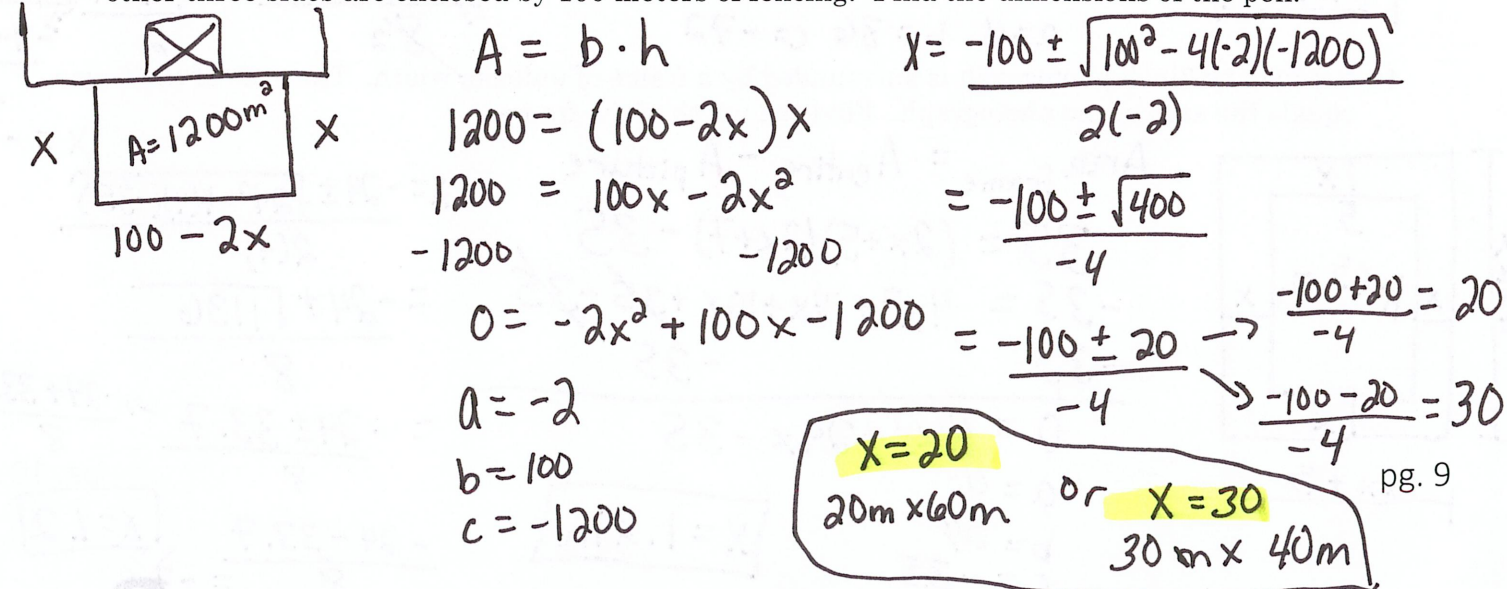 other three sides are enclosed by 100 meters of fencing. Find the dimensions of the pen.
A=1200m²
x
x
100 - 2x
A = b·h
1200 = (100-2x)x
1200 = 100x - 2x²
-1200 -1200
0 = -2x² + 100x - 1200
a = -2
b = 100
c = -1200
x = (-100 ± √(100² - 4(-2)(-1200))) / 2(-2)
= (-100 ± √400) / -4
= (-100 ± 20) / -4
→ (-100+20) / -4 = 20
↘ (-100-20) / -4 = 30
x=20
20m x 60m
or x=30
30 m x 40m
pg. 9